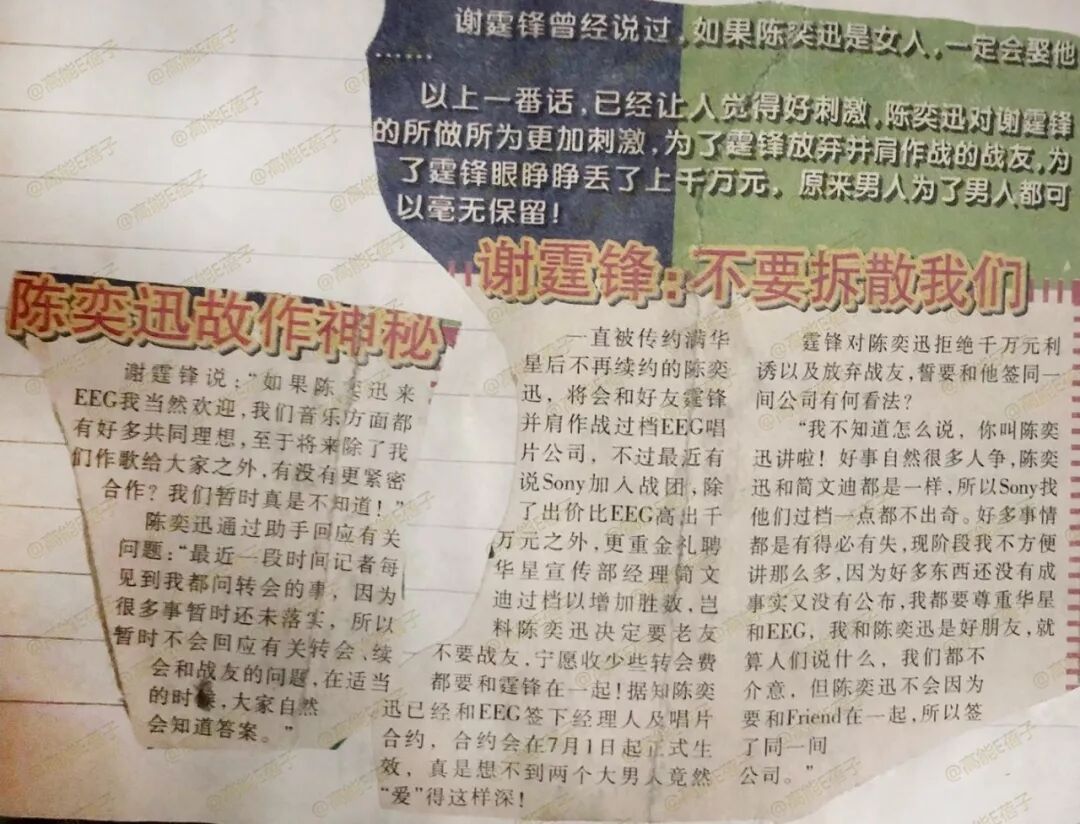 谢霆锋曾经说过,如果陈奕迅是女人,一定会娶他
……
以上一番话,已经让人觉得好刺激,陈奕迅对谢霆锋
的所做所为更加刺激,为了霆锋放弃并肩作战的战友,为
了霆锋眼睁睁丢了上千万元,原来男人为了男人都可
以毫无保留!
谢霆锋:不要拆散我们
一直被传约满华
星后不再续约的陈奕
迅,将会和好友霆锋
并肩作战过档EEG唱
片公司,不过最近有
说Sony加入战团,除
了出价比EEG高出千
万元之外,更重金礼聘
华星宣传部经理简文
迪过档以增加胜数,岂
料陈奕迅决定要老友
不要战友,宁愿收少些转会费
都要和霆锋在一起!据知陈奕
迅已经和EEG签下经理人及唱片
合约,合约会在7月1日起正式生
效,真是想不到两个大男人竟然
“爱”得这样深!
霆锋对陈奕迅拒绝千万元利
诱以及放弃战友,誓要和他签同一
间公司有何看法?
“我不知道怎么说,你叫陈奕
迅讲啦!好事自然很多人争,陈奕
迅和简文迪都是一样,所以Sony找
他们过档一点都不出奇。好多事情
都是有得必有失,现阶段我不方便
讲那么多,因为好多东西还没有成
事实又没有公布,我都要尊重华星
和EEG,我和陈奕迅是好朋友,就
算人们说什么,我们都不
介意,但陈奕迅不会因为
要和Friend在一起,所以签
了同一间
公司。”
陈奕迅故作神秘
谢霆锋说:“如果陈奕迅来
EEG我当然欢迎,我们音乐方面都
有好多共同理想,至于将来除了我
们作歌给大家之外,有没有更紧密
合作?我们暂时真是不知道!”
陈奕迅通过助手回应有关
问题:“最近一段时间记者每
见到我都问转会的事,因为
很多事暂时还未落实,所以
暂时不会回应有关转会、续
会和战友的问题,在适当
的时候,大家自然
会知道答案。”
@高能E蓓子